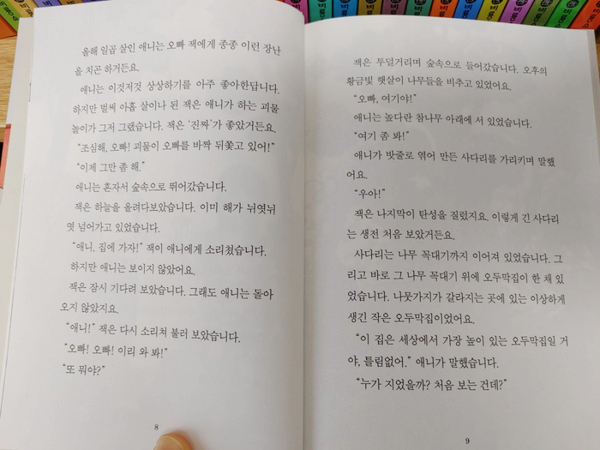 올해 일곱 살인 애니는 오빠 잭에게 종종 이런 장난
을 치곤 하거든요.
애니는 이것저것 상상하기를 아주 좋아한답니다.
하지만 벌써 아홉 살이나 된 잭은 애니가 하는 괴물
놀이가 그저 그랬습니다. 잭은 '진짜'가 좋았거든요.
"조심해, 오빠! 괴물이 오빠를 바짝 뒤쫓고 있어!"
"이제 그만 좀 해."
애니는 혼자서 숲속으로 뛰어갔습니다.
잭은 하늘을 올려다보았습니다. 이미 해가 뉘엿뉘
엿 넘어가고 있었습니다.
"애니, 집에 가자!" 잭이 애니에게 소리쳤습니다.
하지만 애니는 보이지 않았어요.
잭은 잠시 기다려 보았습니다. 그래도 애니는 돌아
오지 않았지요.
"애니!" 잭은 다시 소리쳐 불러 보았습니다.
"오빠! 오빠! 이리 와 봐!"
"또 뭐야?"
8
잭은 투덜거리며 숲속으로 들어갔습니다. 오후의
황금빛 햇살이 나무들을 비추고 있었어요.
"오빠, 여기야!"
애니는 높다란 참나무 아래에 서 있었습니다.
"여기 좀 봐!"
애니가 밧줄로 엮어 만든 사다리를 가리키며 말했
어요.
"우아!"
잭은 나지막이 탄성을 질렀지요. 이렇게 긴 사다리
는 생전 처음 보았거든요.
사다리는 나무 꼭대기까지 이어져 있었습니다. 그
리고 바로 그 나무 꼭대기 위에 오두막집이 한 채 있
었습니다. 나뭇가지가 갈라지는 곳에 있는 이상하게
생긴 작은 오두막집이었어요.
"이 집은 세상에서 가장 높이 있는 오두막집일 거
야, 틀림없어." 애니가 말했습니다.
"누가 지었을까? 처음 보는 건데?"
9